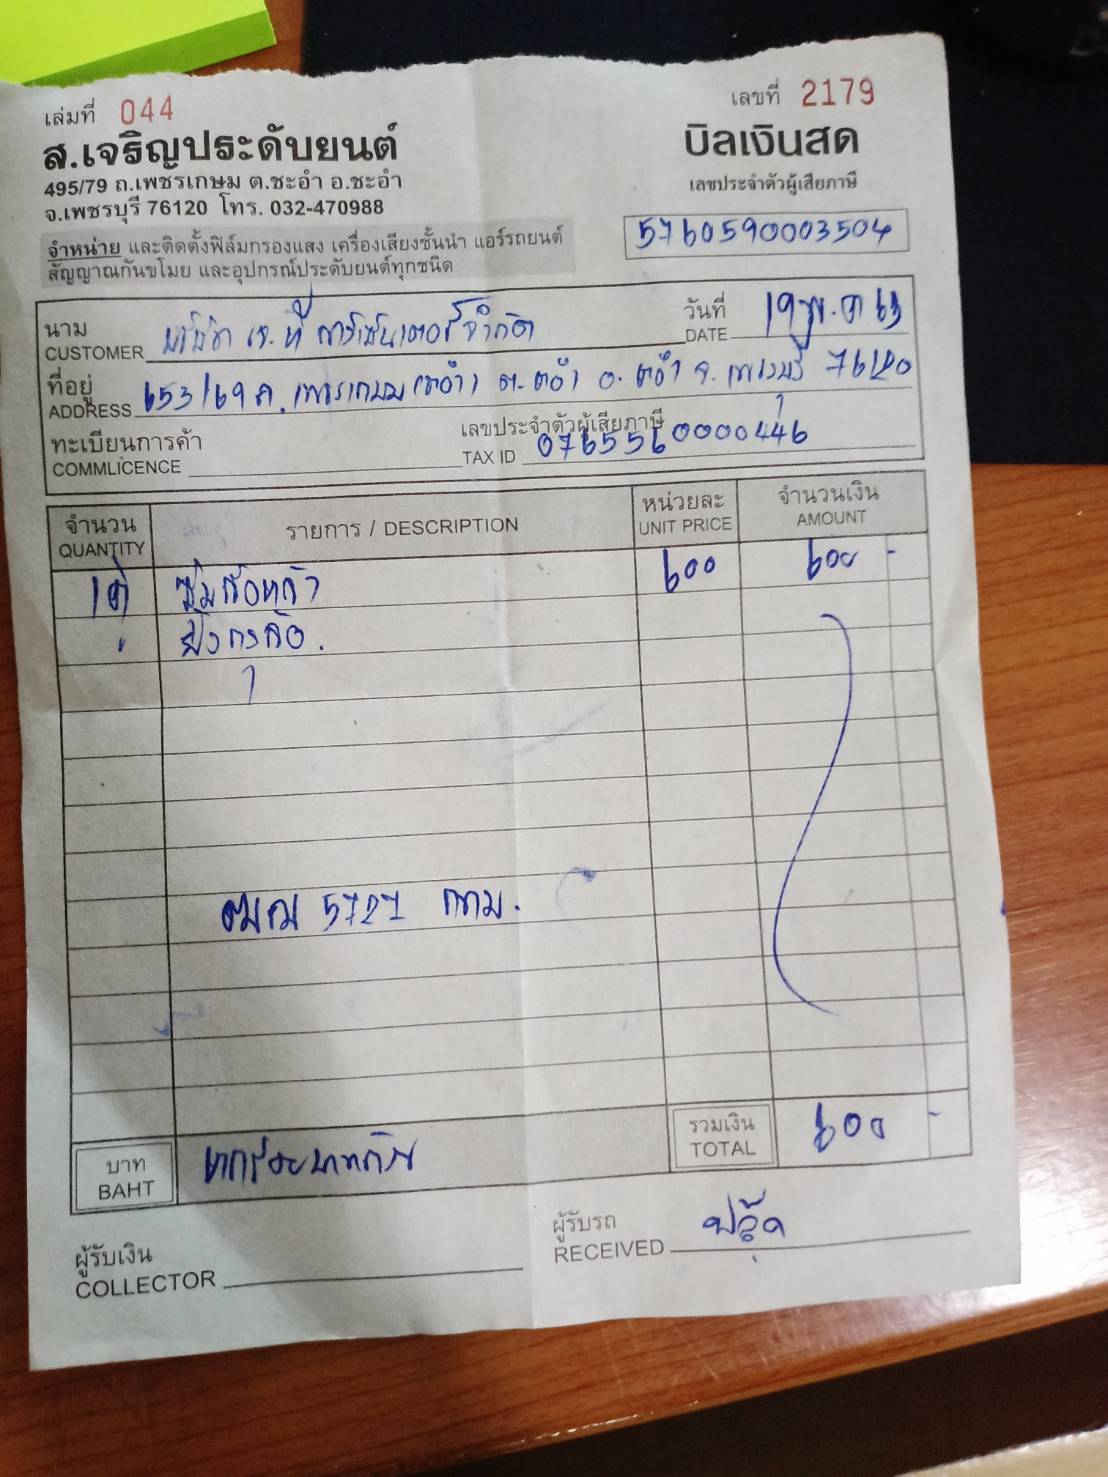 เล่มที่ 044
เลขที่ 2179
ส.เจริญประดับยนต์
บิลเงินสด
495/79 ถ.เพชรเกษม ต.ชะอำ อ.ชะอำ
จ.เพชรบุรี 76120 โทร. 032-470988
เลขประจำตัวผู้เสียภาษี
5760590003504
จำหน่าย และติดตั้งฟิล์มกรองแสง เครื่องเสียงชั้นนำ แอร์รถยนต์
สัญญาณกันขโมย และอุปกรณ์ประดับยนต์ทุกชนิด
นาม
CUSTOMER บริษัท เจ.ที คาร์เซ็นเตอร์ จำกัด
วันที่
DATE 19 พ.ค 63
ที่อยู่
ADDRESS 653/69 ถ. เพชรเกษม (ชะอำ) ต.ชะอำ อ.ชะอำ จ.เพชรบุรี 76120
ทะเบียนการค้า
COMMLICENCE
เลขประจำตัวผู้เสียภาษี
TAX ID 0765560000446
จำนวน
QUANTITY
รายการ / DESCRIPTION
หน่วยละ
UNIT PRICE
จำนวนเงิน
AMOUNT
600 600 -
5727 กทม.
บาท
BAHT หกร้อยบาทถ้วน
รวมเงิน
TOTAL 600 -
ผู้รับเงิน
COLLECTOR
ผู้รับรถ
RECEIVED